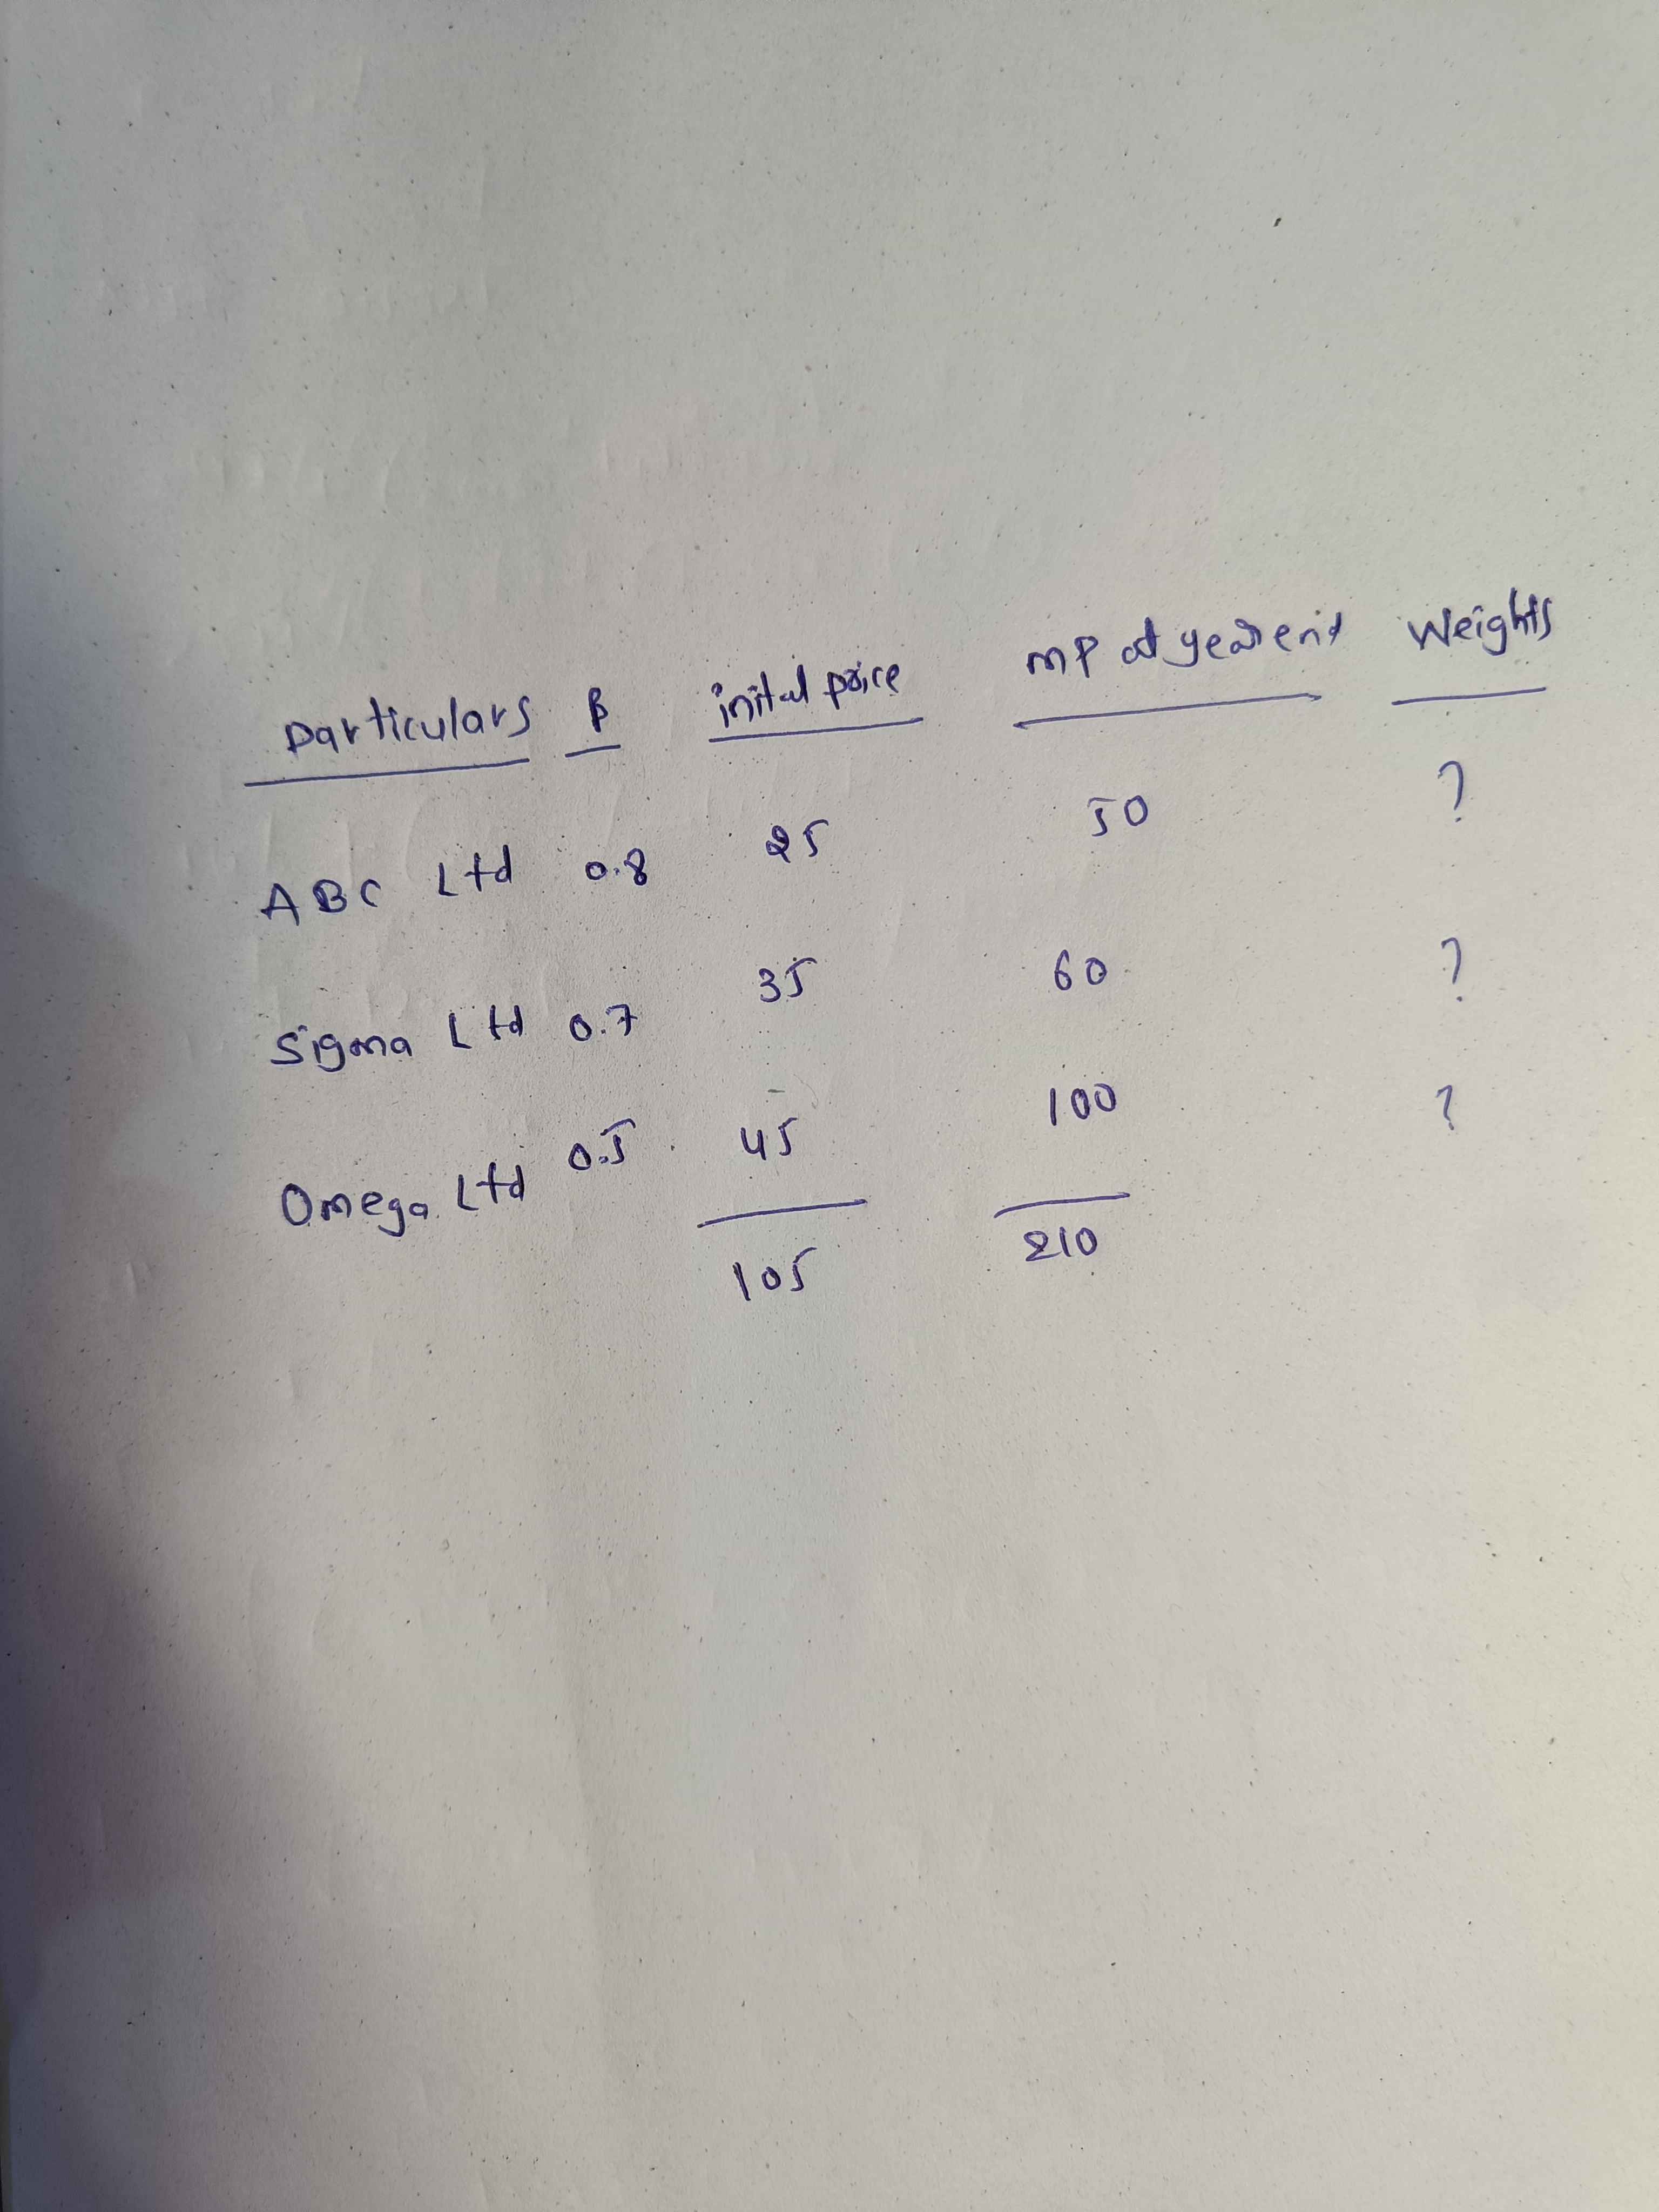 Particulars β inital price MP at yearend Weights
ABC Ltd 0.8 25 50 ?
Sigma Ltd 0.7 35 60 ?
Omega Ltd 0.5 45 100 ?
105 210